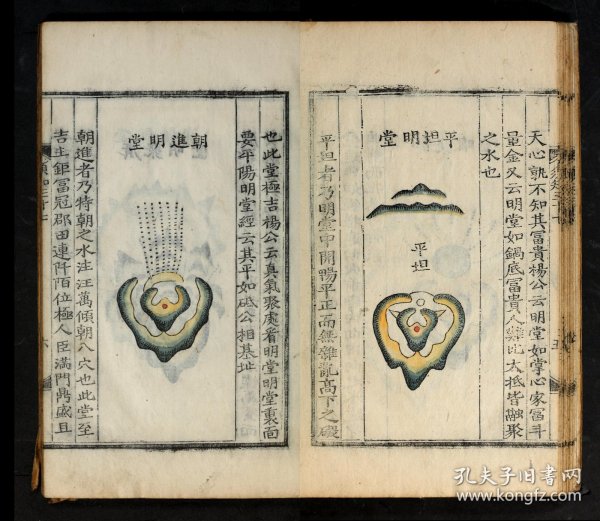 天心孰不知其冨貴楊公云明堂如掌心家冨斗
量金又云明堂如鍋底冨貴人難比大抵皆融聚
之水也
平坦明堂
平坦
平坦者乃明堂中開暢平正而無雜亂高下之礙
也此堂極吉楊公云真氣聚處看明堂明堂裏面
要平陽明堂經云其平如砥公相基址
朝進明堂
朝進者乃特朝之水注汪萬傾朝入穴也此堂至
吉主鉅冨冠郡田連阡陌位極人臣滿門鼎盛且
孔夫子旧书网
www.kongfz.com